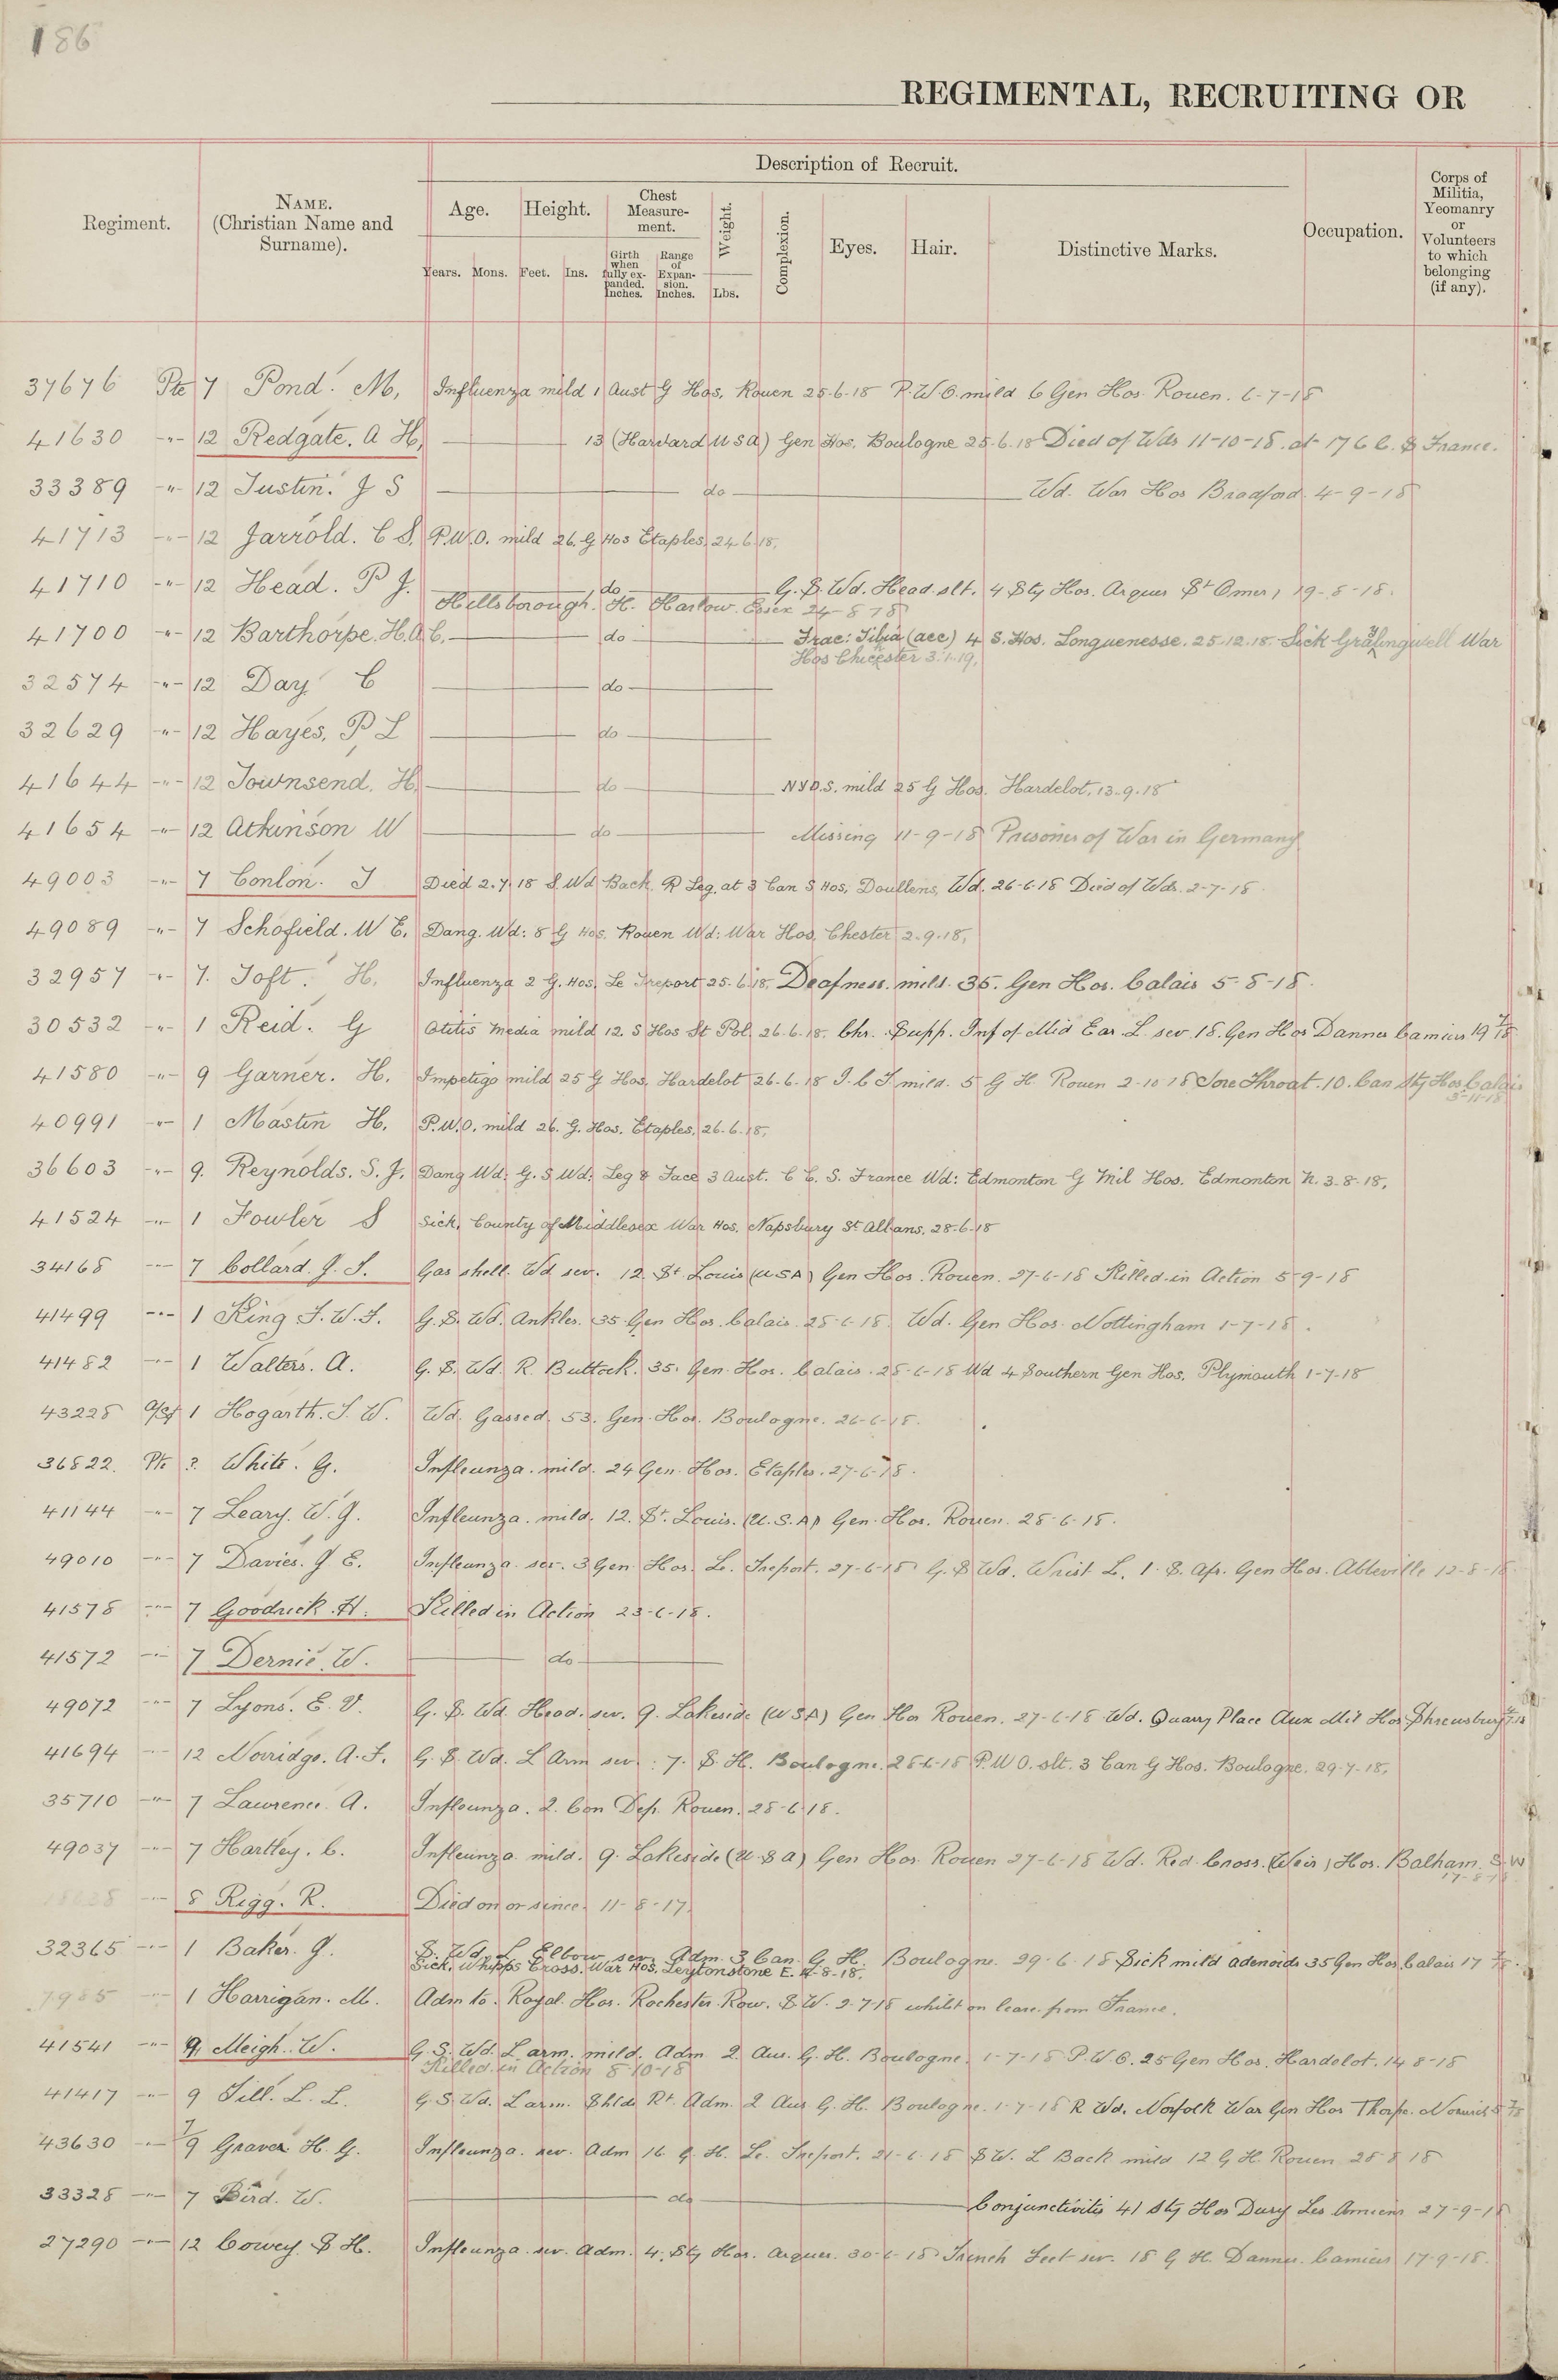 186
REGIMENTAL, RECRUITING OR
Regiment.
NAME.
(Christian Name and
Surname).
Description of Recruit.
Age.
Height.
Chest
Measure-
ment.
Weight.
Complexion.
Eyes.
Hair.
Distinctive Marks.
Occupation.
Corps of
Militia,
Yeomanry
or
Volunteers
to which
belonging
(if any).
Years.
Mons.
Feet.
Ins.
Girth
when
fully ex-
panded.
Inches.
Range
of
Expan-
sion.
Inches.
Lbs.
37676 Pte 7 Pond. M, Influenza mild 1 Aust G Hos, Rouen 25-6-18 P.U.O. mild 6 Gen Hos Rouen. 6-7-18
41630 -"- 12 Redgate. A H, 13 (Harvard USA) Gen Hos, Boulogne 25.6.18 Died of Wds 11-10-18. at 17 C.C.S France.
33389 -"- 12 Justin. J S do Wd. War Hos Bradford. 4-9-18
41713 -"- 12 Jarrold. C S. P.U.O. mild 26. G Hos Etaples, 24.6.18,
41710 -"- 12 Head. P J. do G.S. Wd. Head slt. 4 Sty Hos. Arques St Omer, 19-8-18.
Hillsborough. H. Harlow. Essex 24-8-18
41700 -"- 12 Barthorpe. H.A.C. do Frac: Tibia (acc) 4 S. Hos. Longuenesse. 25.12.18. Sick Graylingwell War
Hos Chichester 3.1.19.
32574 -"- 12 Day C do
32629 -"- 12 Hayes, P L do
41644 -"- 12 Townsend. H. do NYD.S. mild 25 G Hos. Hardelot, 13-9-18
41654 -"- 12 Atkinson W do Missing 11-9-18 Prisoner of War in Germany
49003 -"- 7 Conlon. J Died 2.7.18 S.Wd Back, R Leg, at 3 Can S Hos, Doullens, Wd. 26-6-18 Died of Wds. 2-7-18.
49089 -"- 7 Schofield. W E. Dang. Wd: 8 G Hos, Rouen Wd: War Hos, Chester 2.9.18,
32957 -"- 7. Toft. H. Influenza 2 G. Hos, Le Treport 25.6.18, Deafness. mild. 35. Gen Hos. Calais 5-8-18.
30532 -"- 1 Reid. G Otitis Media mild 12. S Hos St Pol, 26.6.18. Chr. Supp. Inf of Mid Ear. L. sev 18. Gen Hos Dannes Camiers 19 7/18
41580 -"- 9 Garner. H. Impetigo mild 25 G Hos, Hardelot 26-6-18 I.C.T. mild. 5 G H. Rouen 2-10-18 Sore Throat. 10. Can Sty Hos Calais
3-11-18
40991 -"- 1 Mastin H. P.U.O. mild 26. G. Hos. Etaples, 26.6.18,
36603 -"- 9. Reynolds. S. J. Dang Wd: G.S Wd: Leg & Face 3 Aust. C C. S. France Wd: Edmonton G Mil Hos. Edmonton N. 3-8-18,
41524 -"- 1 Fowler S Sick, County of Middlesex War Hos, Napsbury St Albans, 28-6-18
34168 -"- 7 Collard. J. S. Gas shell. Wd sev. 12. St Louis (USA) Gen Hos. Rouen. 27-6-18 Killed in Action 5-9-18
41499 -"- 1 King. F. W. F. G.S. Wd. Ankles. 35 Gen Hos. Calais. 28-6-18. Wd. Gen Hos. Nottingham 1-7-18.
41482 -"- 1 Walters. A. G. S. Wd. R. Buttock. 35. Gen. Hos. Calais. 28-6-18 Wd 4 Southern Gen Hos. Plymouth 1-7-18
43228 1 Hogarth. S. W. Wd. Gassed. 53. Gen. Hos. Boulogne. 26-6-18.
36822. Pte ?. White. G. Infleunza. mild. 24 Gen. Hos. Etaples. 27-6-18.
41144 -"- 7 Leary. W. J. Infleunza. mild. 12. St. Louis. (U.S.A) Gen. Hos. Rouen. 28-6-18.
49010 -"- 7 Davies. J E. Infleunza. sev. 3 Gen Hos. Le. Treport. 27-6-18 G.S Wd. Wrist L. 1. S. Afr. Gen Hos. Abbeville 12-8-18
41578 -"- 7 Goodrick. H. Killed in Action 23-6-18.
41572 -"- 7 Dernie. W. do
49072 -"- 7 Lyons. E. V. G. S. Wd. Head. sev. 9. Lakeside (USA) Gen Hos Rouen. 27-6-18 Wd. Quarry Place Aux Mil Hos Shrewsbury
41694 -"- 12 Norridge. A. F. G.S. Wd. L Arm sev. 7. S. H. Boulogne. 28-6-18 P.U O. slt. 3 Can G Hos. Boulogne. 29-7-18,
35710 -"- 7 Lawrence. A. Infleunza. 2. Con Dep. Rouen. 28-6-18.
49037 -"- 7 Hartley. C. Infleunza. mild. 9. Lakeside (U.S A) Gen Hos. Rouen 27-6-18 Wd. Red. Cross. (Weir) Hos. Balham. S.W
17-8-18
-"- 8 Rigg. R. Died on or since. 11-8-17.
32365 -"- 1 Baker. J. S. Wd. L Elbow sev. Adm. 3 Can. G H. Boulogne. 29-6-18 Sick mild adenoids 35 Gen Hos. Calais 17
Sick, Whipps Cross. War Hos. Leytonstone E. 14-8-18.
7985 -"- 1 Harrigan. M. Adm to. Royal. Hos. Rochester. Row. S W. 2-7-18 whilst on leave from France.
41541 -"- 9. Meigh. W. G.S. Wd. L arm. mild. Adm 2. Aus. G. H. Boulogne. 1-7-18 P.U.O. 25 Gen Hos. Hardelot. 14 8-18
Killed in Action 8-10-18
41417 -"- 9 Till. L. L. G.S. Wd. L arm. Shldr Rt. Adm. 2 Aus G. H. Boulogne. 1-7-18 R Wd. Norfolk War Gen Hos Thorpe. Norwich
43630 -"- 7/9 Graver H. G. Infleunza. sev. Adm 16. G. H. Le. Treport. 21-6-18 S W. L Back mild 12 G H. Rouen 28 8 18
33328 -"- 7 Bird. W. do Conjunctivitis 41 Sty Hos Dury Les Amiens 27-9-18
27290 -"- 12 Covey S H. Infleunza. sev. Adm. 4. Sty Hos. Arques. 30-6-18 Trench Feet sev. 18 G H. Dannes. Camiers 17-9-18.